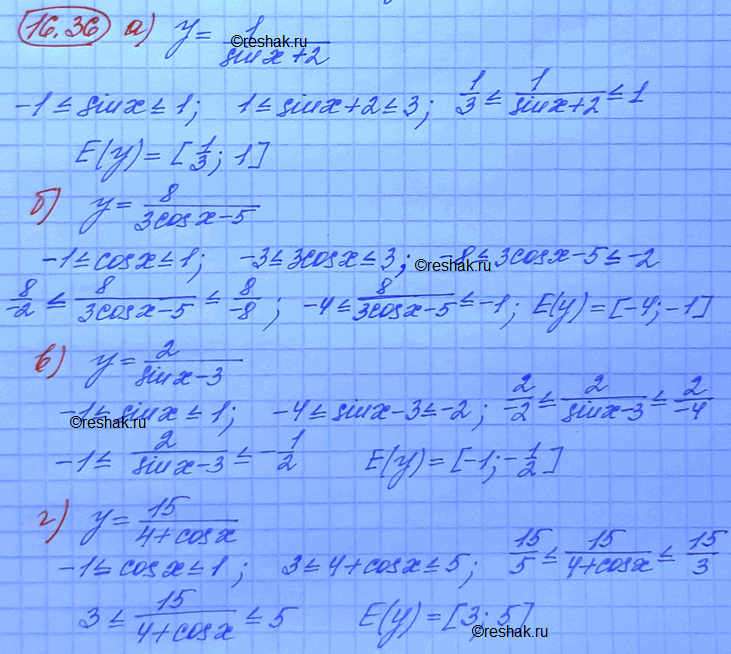 16.36 а) y = 1/(sinx+2)
©reshak.ru
-1 ≤ sinx ≤ 1; 1 ≤ sinx+2 ≤ 3; 1/3 ≤ 1/(sinx+2) ≤ 1
E(y) = [1/3; 1]
б) y = 8/(3cosx-5)
-1 ≤ cosx ≤ 1; -3 ≤ 3cosx ≤ 3; -8 ≤ 3cosx-5 ≤ -2
©reshak.ru
8/-2 ≤ 8/(3cosx-5) ≤ 8/-8; -4 ≤ 8/(3cosx-5) ≤ -1; E(y) = [-4; -1]
в) y = 2/(sinx-3)
-1 ≤ sinx ≤ 1; -4 ≤ sinx-3 ≤ -2; 2/-2 ≤ 2/(sinx-3) ≤ 2/-4
©reshak.ru
-1 ≤ 2/(sinx-3) ≤ -1/2 E(y) = [-1; -1/2]
г) y = 15/(4+cosx)
-1 ≤ cosx ≤ 1; 3 ≤ 4+cosx ≤ 5; 15/5 ≤ 15/(4+cosx) ≤ 15/3
3 ≤ 15/(4+cosx) ≤ 5 E(y) = [3; 5]
©reshak.ru